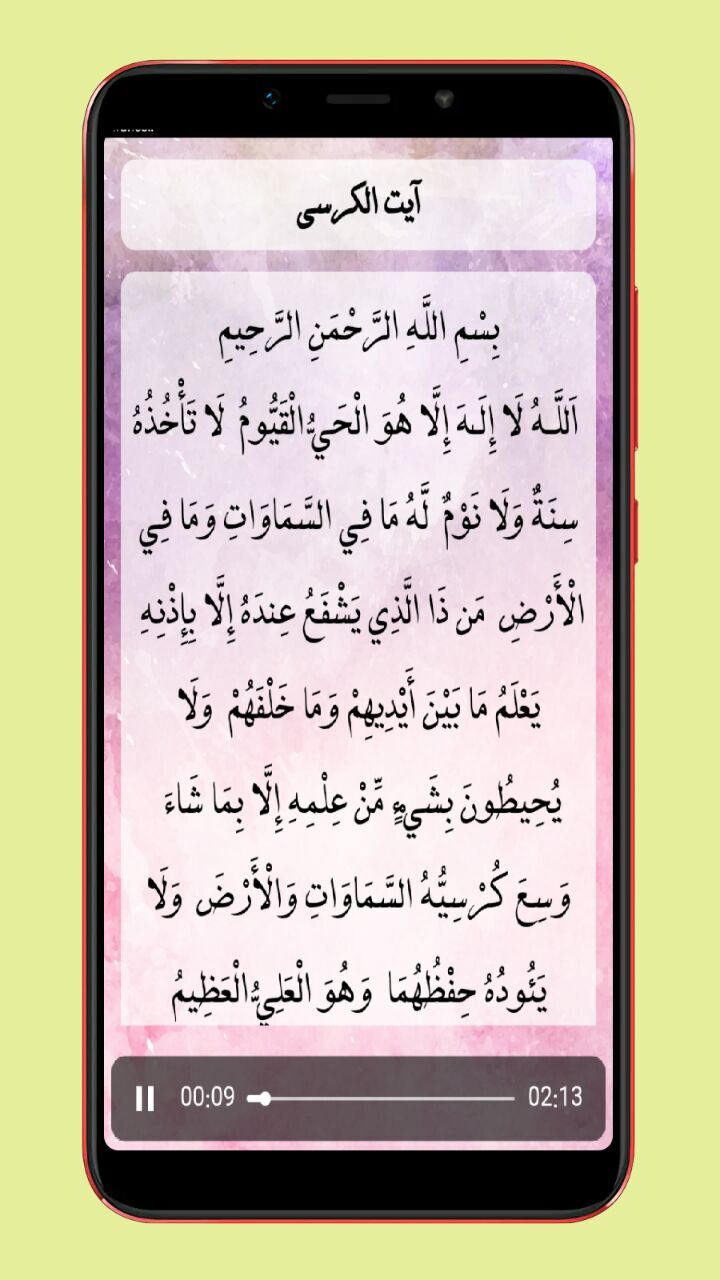 آیت الکرسی
بِسْمِ اللَّهِ الرَّحْمَنِ الرَّحِيمِ
اَللَّـهُ لَا إِلَـهَ إِلَّا هُوَ الْحَيُّ الْقَيُّومُ لَا تَأْخُذُهُ
سِنَةٌ وَلَا نَوْمٌ لَّهُ مَا فِي السَّمَاوَاتِ وَمَا فِي
الْأَرْضِ مَن ذَا الَّذِي يَشْفَعُ عِندَهُ إِلَّا بِإِذْنِهِ
يَعْلَمُ مَا بَيْنَ أَيْدِيهِمْ وَمَا خَلْفَهُمْ وَلَا
يُحِيطُونَ بِشَيْءٍ مِّنْ عِلْمِهِ إِلَّا بِمَا شَاءَ
وَسِعَ كُرْسِيُّهُ السَّمَاوَاتِ وَالْأَرْضَ وَلَا
يَئُودُهُ حِفْظُهُمَا وَهُوَ الْعَلِيُّ الْعَظِيمُ
00:09 02:13